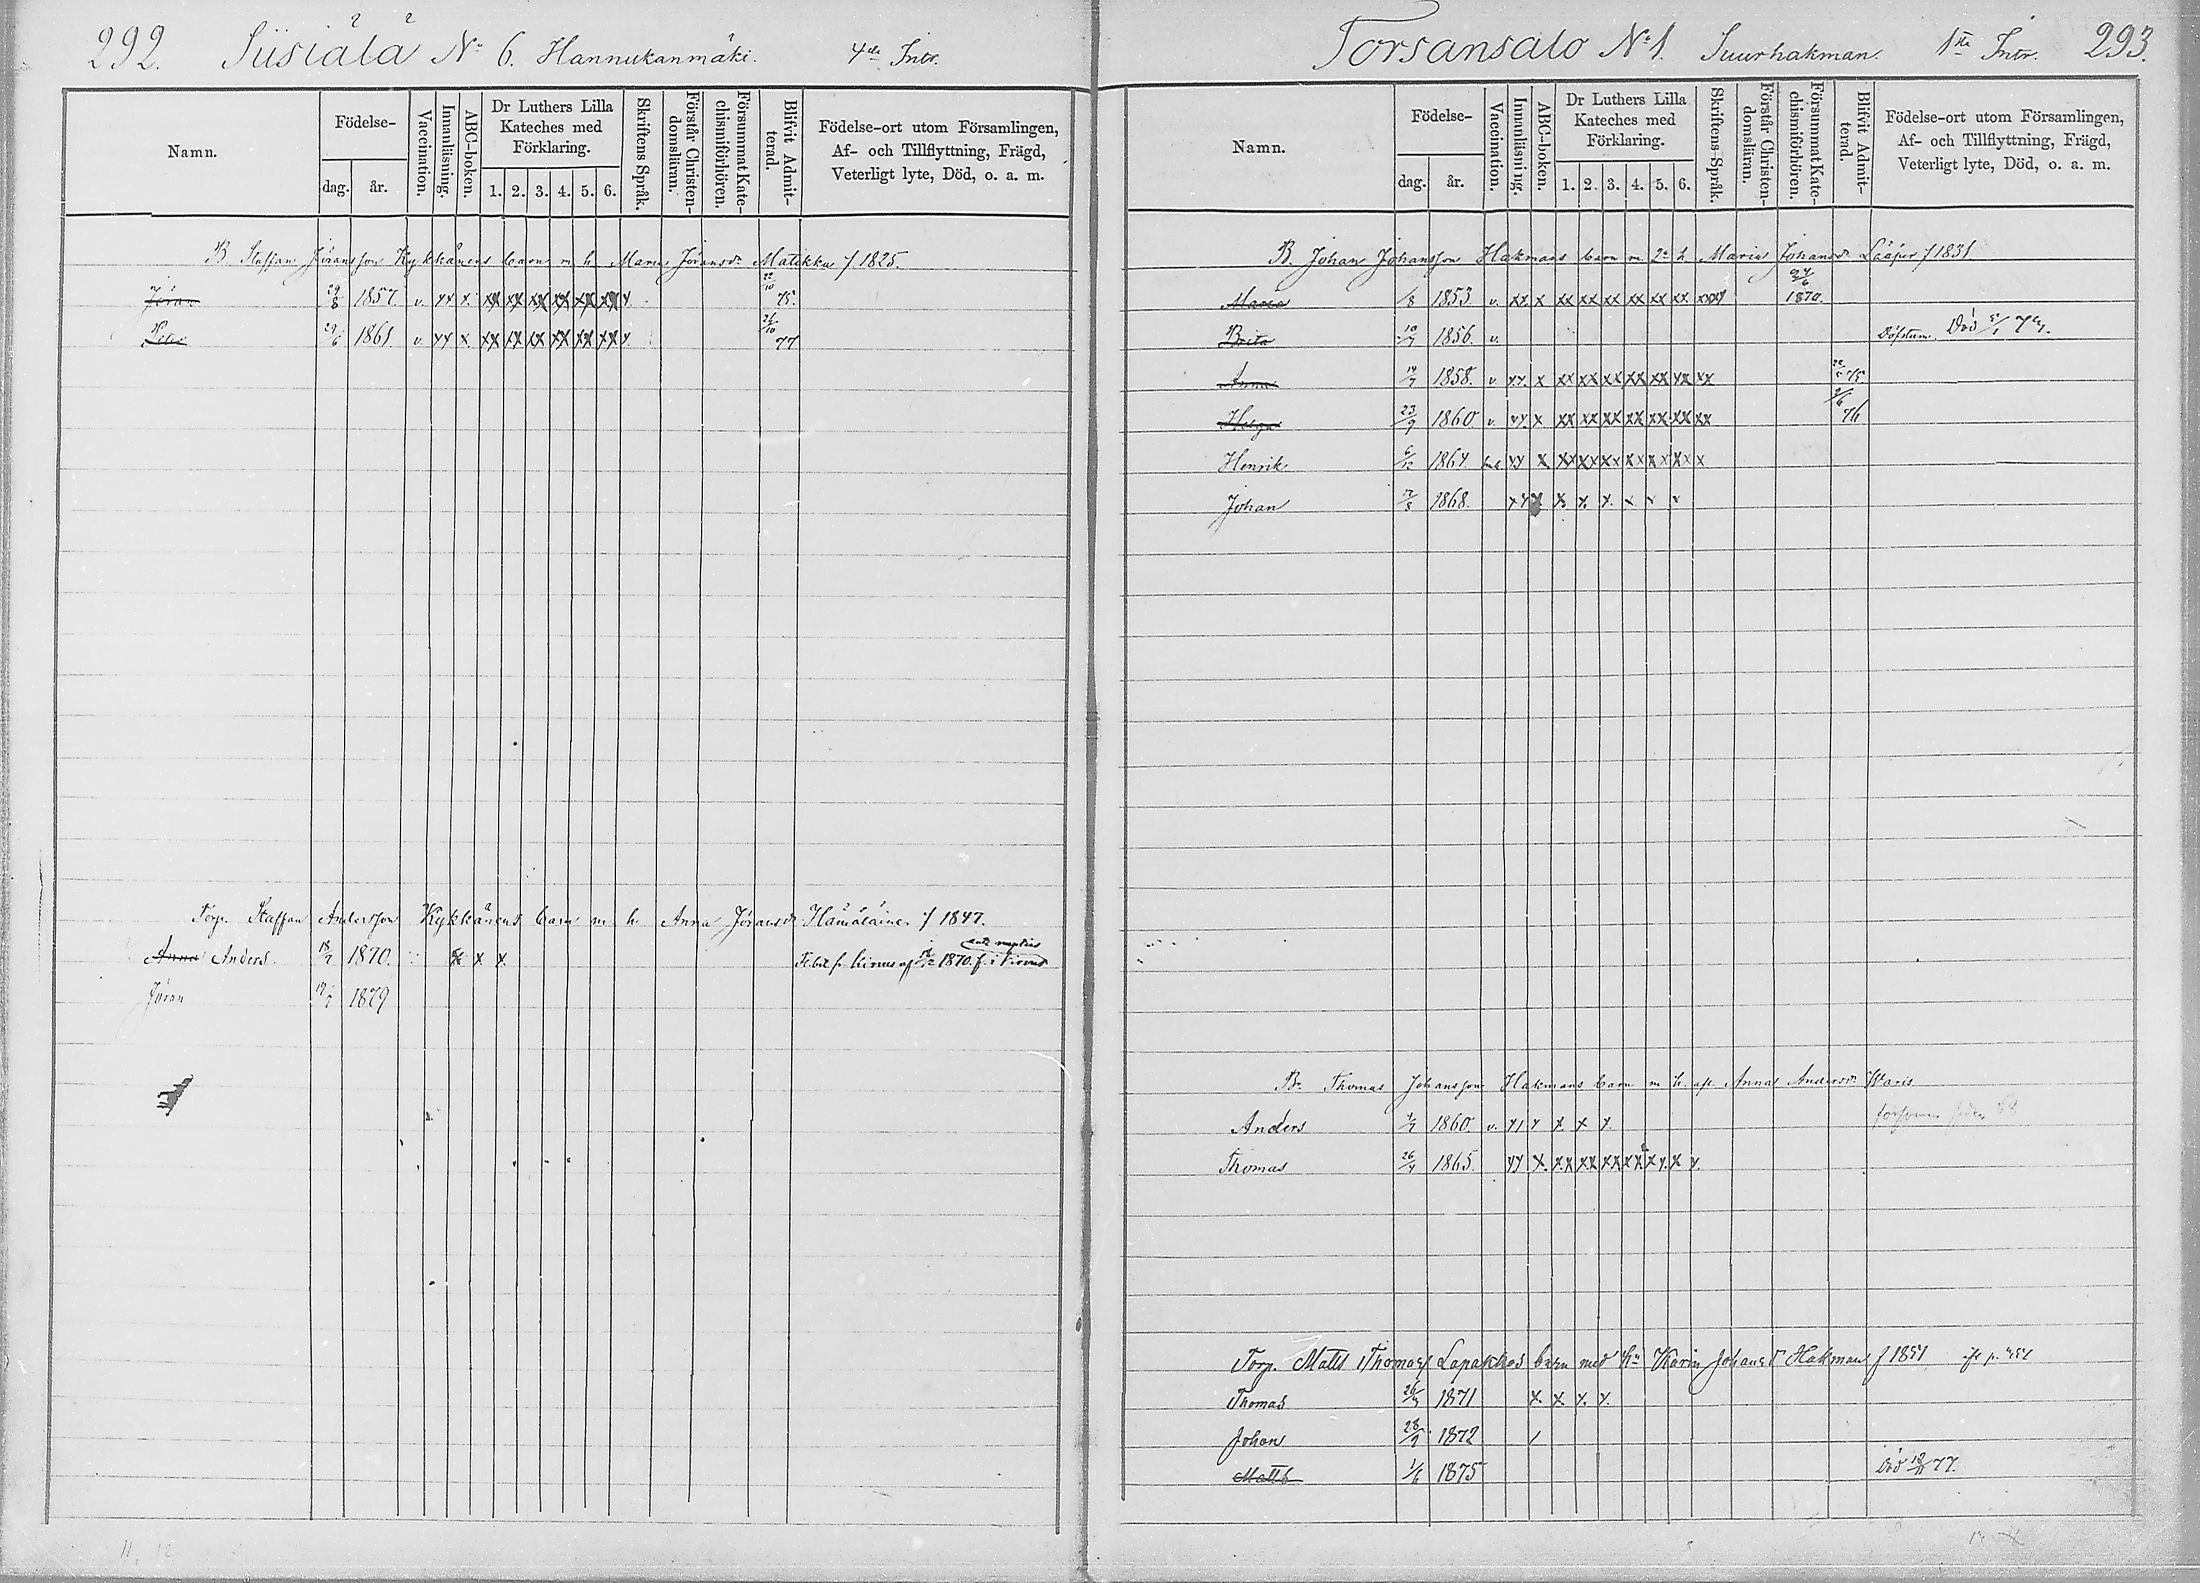 292. Siisiälä No 6. Hannukanmäki. 4de Intr.
Namn. Födelse- dag. år. Vaccination. Innanläsning. ABC-boken. Dr Luthers Lilla Kateches med Förklaring. 1. 2. 3. 4. 5. 6. Skriftens Språk. Förstår Christendomsläran. Försummat Katechismiförhören. Blifvit Admitterad. Födelse-ort utom Församlingen, Af- och Tillflyttning, Frägd, Veterligt lyte, Död, o. a. m.
B. Staffan Jöransson Kykkänens barn m. h. Maria Jöransdr Matikka f 1825.
Jöran 29/8 1857. v. xx x. xx xx xx xx xx xx x. 22/10 75.
Peter 29/6 1861 v. xx x. xx xx xx xx xx xx x. 21/10 77
Torp. Staffan Andersson Kykkänens barn m. h. Anna Jöransdr Hämäläinen f 1847.
Anna Anders 18/7 1870. x x x.
Jöran 19/7 1879
Torsansalo No 1. Suurhakman. 1sta Intr. 293.
Namn. Födelse- dag. år. Vaccination. Innanläsning. ABC-boken. Dr Luthers Lilla Kateches med Förklaring. 1. 2. 3. 4. 5. 6. Skriftens Språk. Förstår Christendomsläran. Försummat Katechismiförhören. Blifvit Admitterad. Födelse-ort utom Församlingen, Af- och Tillflyttning, Frägd, Veterligt lyte, Död, o. a. m.
B. Johan Johansson Hakmans barn m. 2a h. Maria Johansdr Lääperi f 1831
Maria 1/8 1853. v. xx. x xx xx xx xx xx xx xxx 24/6 1870.
Brita 1856. v. Döfstum. Död 5/1 74.
Anna 19/7 1858. v. xx. x xx xx xx xx xx xx xx 75
Helga 23/9 1860 v. xx x xx xx xx xx xx xx xx 2/6 76
Henrik 6/12 1864. xx x xx xx xx xx xx xx x
Johan 17/8 1868. xx x x. x. x. x x x
B. Thomas Johansson Hakmans barn m. h. afl. Anna Andersdr Waris
Anders 1/7 1860. v. xx x x. x x.
Thomas 26/4 1865. xx x. xx xx xx xx xx. x x.
Torp. Matts Thomass Lapakkos barn med hu Karin Johansdr Hakman f 1851
Thomas 26/4 1871 x x x. x.
Johan 28/9 1872 /
Matts 1/6 1875 Död 77.